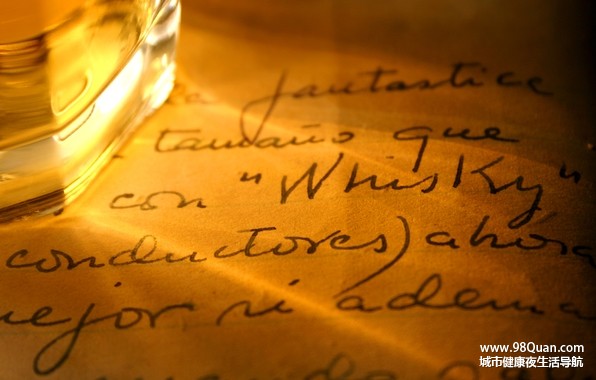 fantastico
tamaño que
con "Whisky"
conductores) ahora
mejor si adema
www.98Quan.com
城市健康夜生活导航